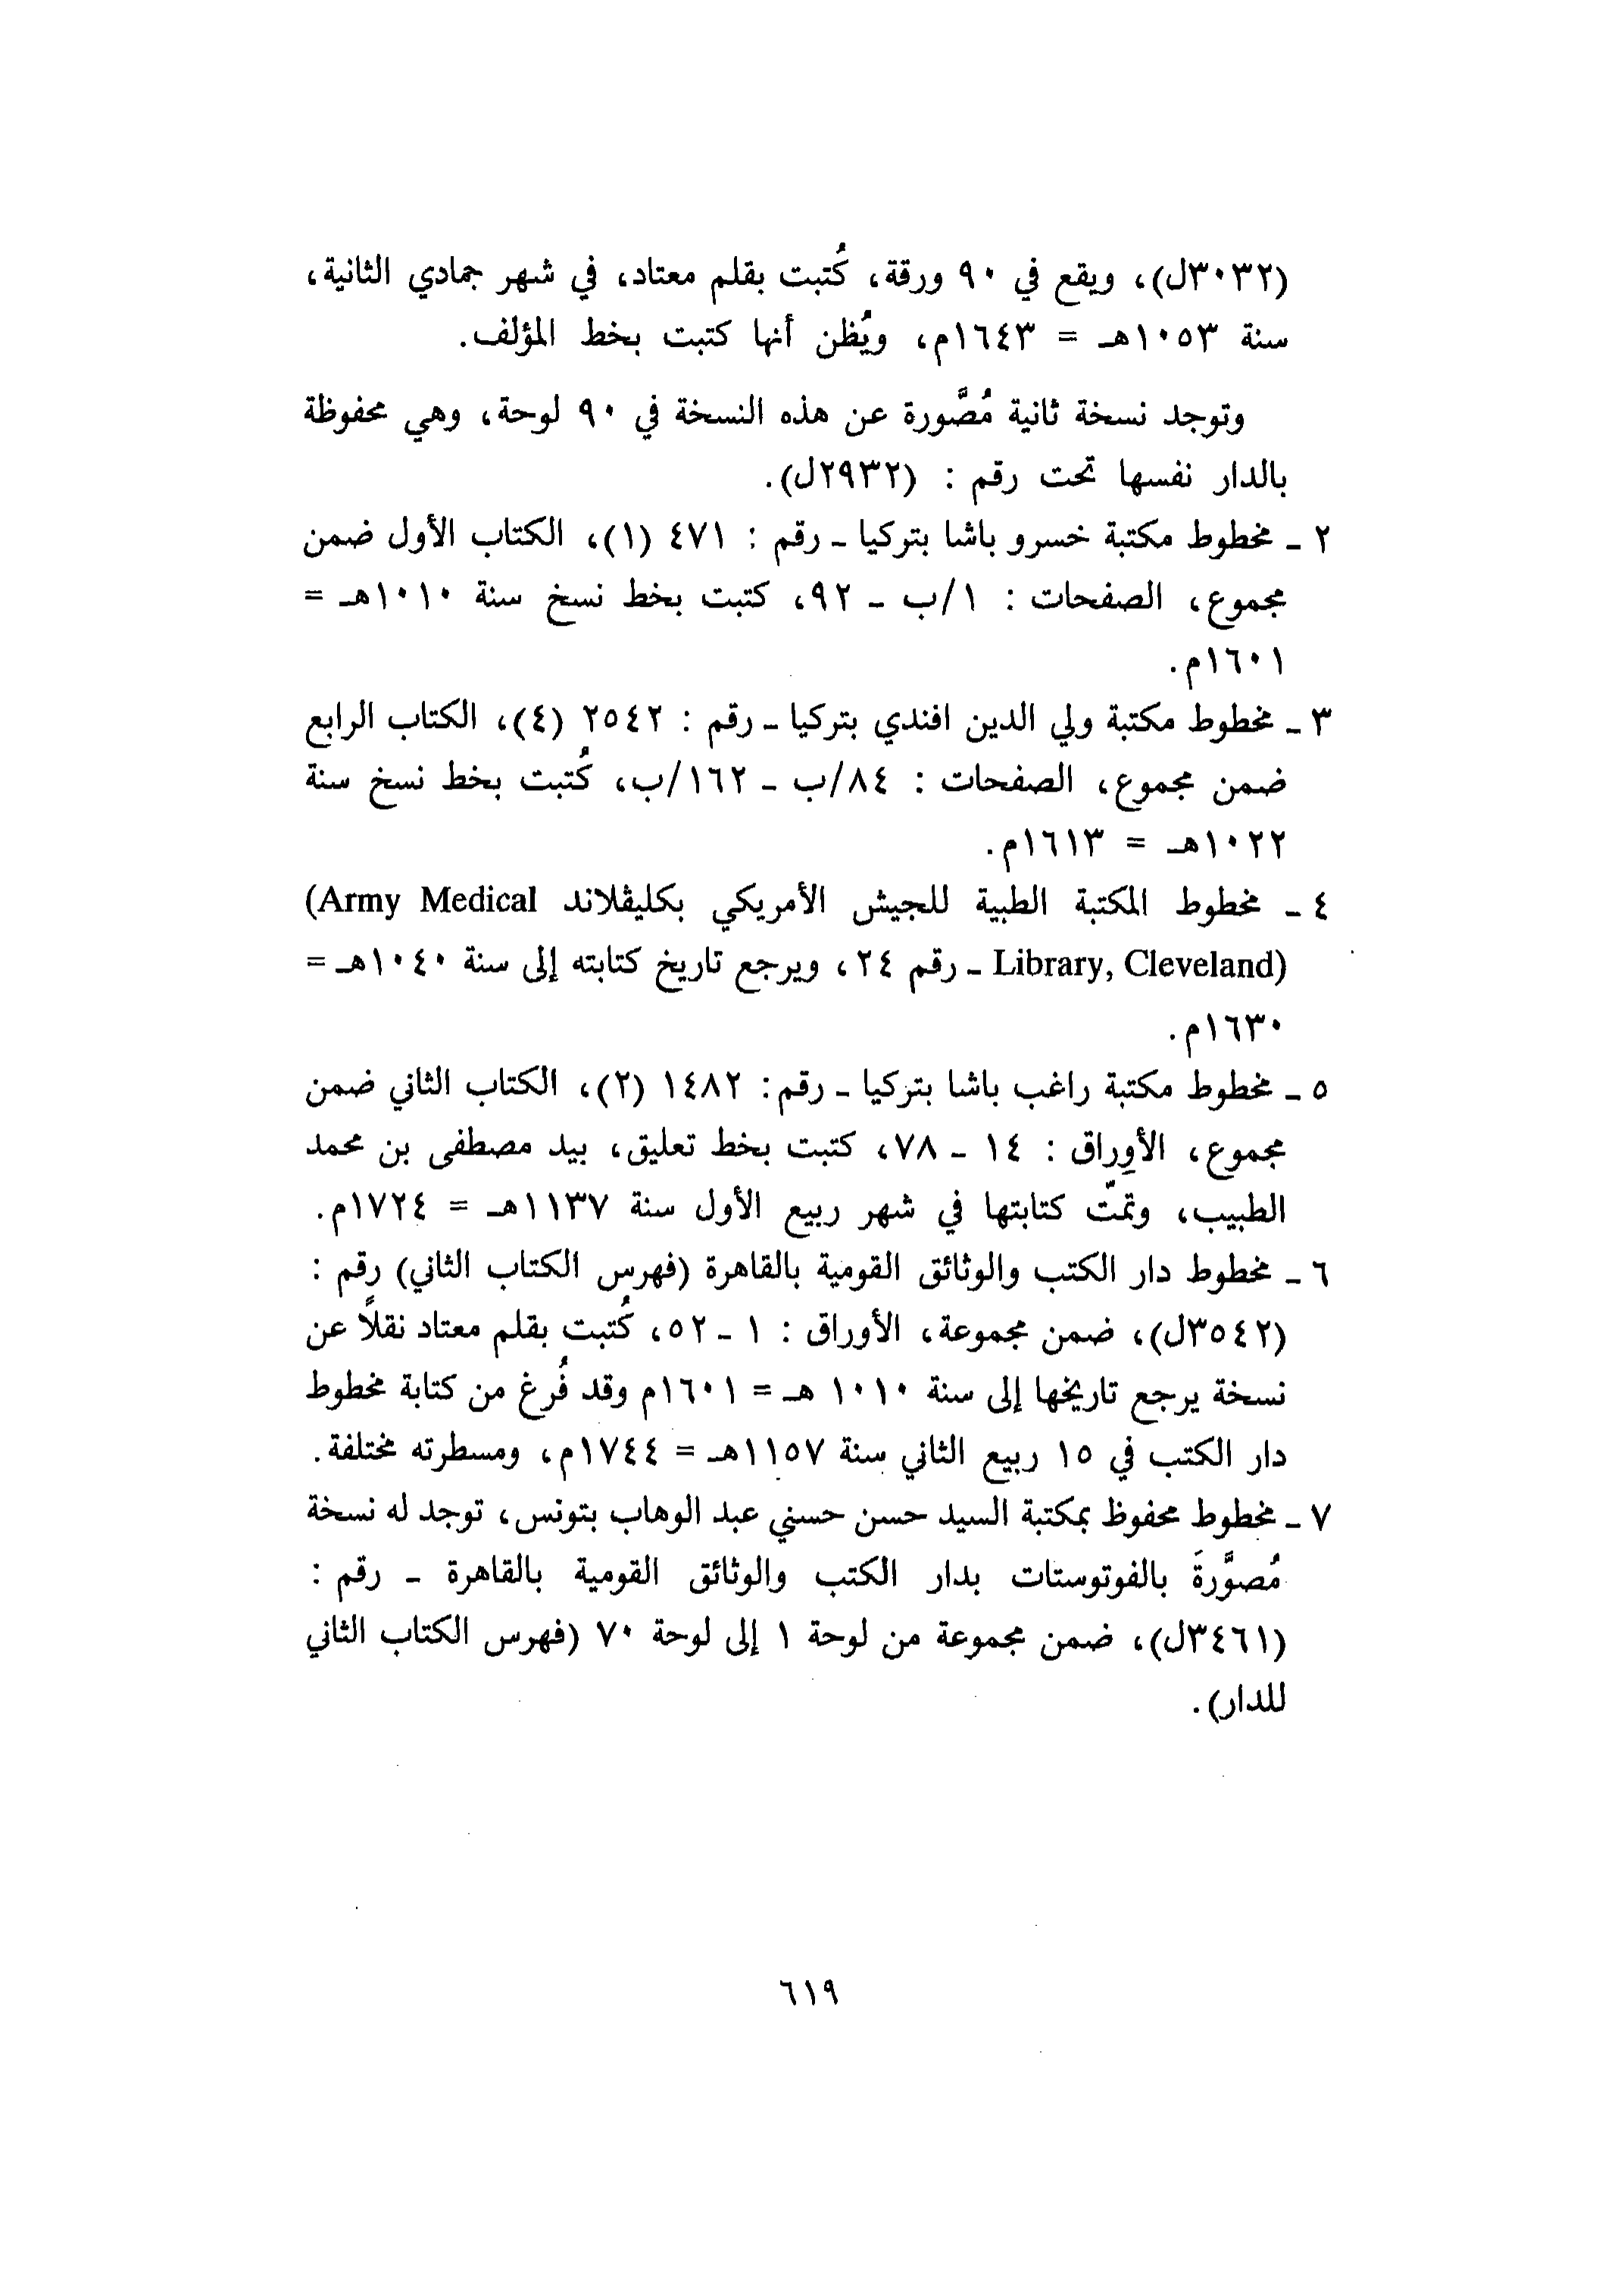 (٣٠٣٢ل)، ويقع في ٩٠ ورقة، كُتبت بقلم معتاد، في شهر جمادي الثانية،
سنة ١٠٥٣هـ = ١٦٤٣م، ويُظن أنها كتبت بخط المؤلف.
وتوجد نسخة ثانية مُصَّورة عن هذه النسخة في ٩٠ لوحة، وهي محفوظة
بالدار نفسها تحت رقم : (٢٩٣٢ل).
٢ ـ مخطوط مكتبة خسرو باشا بتركيا ـ رقم : ٤٧١ (١)، الكتاب الأول ضمن
مجموع، الصفحات : ١/ب ـ ٩٢، كتبت بخط نسخ سنة ١٠١٠هـ =
١٦٠١م.
٣ ـ مخطوط مكتبة ولي الدين افندي بتركيا ـ رقم : ٢٥٤٢ (٤)، الكتاب الرابع
ضمن مجموع، الصفحات : ٨٤/ب ـ ١٦٢/ب، كُتبت بخط نسخ سنة
١٠٢٢هـ = ١٦١٣م.
٤ ـ مخطوط المكتبة الطبية للجيش الأمريكي بكليڤلاند (Army Medical
Library, Cleveland) ـ رقم ٢٤، ويرجع تاريخ كتابته إلى سنة ١٠٤٠هـ =
١٦٣٠م.
٥ ـ مخطوط مكتبة راغب باشا بتركيا ـ رقم: ١٤٨٢ (٢)، الكتاب الثاني ضمن
مجموع، الأوراق : ١٤ ـ ٧٨، كتبت بخط تعليق، بيد مصطفى بن محمد
الطبيب، وتمّت كتابتها في شهر ربيع الأول سنة ١١٣٧هـ = ١٧٢٤م.
٦ ـ مخطوط دار الكتب والوثائق القومية بالقاهرة (فهرس الكتاب الثاني) رقم :
(٣٥٤٢ل)، ضمن مجموعة، الأوراق : ١ ـ ٥٢، كُتبت بقلم معتاد نقلاً عن
نسخة يرجع تاريخها إلى سنة ١٠١٠ هـ = ١٦٠١م وقد فُرغ من كتابة مخطوط
دار الكتب في ١٥ ربيع الثاني سنة ١١٥٧هـ = ١٧٤٤م، ومسطرته مختلفة.
٧ ـ مخطوط محفوظ بمكتبة السيد حسن حسني عبد الوهاب بتونس، توجد له نسخة
مُصوَّرةَ بالفوتوستات بدار الكتب والوثائق القومية بالقاهرة ـ رقم :
(٣٤٦١ل)، ضمن مجموعة من لوحة ١ إلى لوحة ٧٠ (فهرس الكتاب الثاني
للدار).
٦١٩